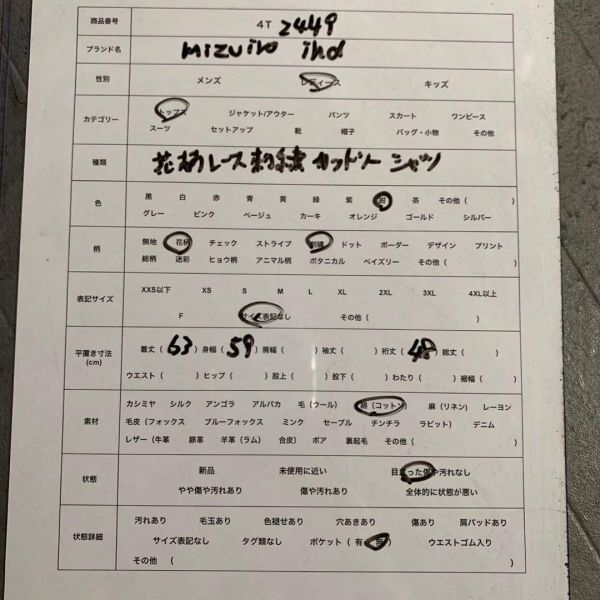 商品番号 4T 2449
ブランド名 mizuiro ind
性別 メンズ レディース キッズ
カテゴリー トップス ジャケット/アウター パンツ スカート ワンピース
スーツ セットアップ 靴 帽子 バッグ・小物 その他
種類 花柄レース刺繍 カットソー シャツ
色 黒 白 赤 青 黄 緑 紫 紺 茶 その他 ( )
グレー ピンク ベージュ カーキ オレンジ ゴールド シルバー
柄 無地 花柄 チェック ストライプ 刺繍 ドット ボーダー デザイン プリント
総柄 迷彩 ヒョウ柄 アニマル柄 ボタニカル ペイズリー その他 ( )
表記サイズ XXS以下 XS S M L XL 2XL 3XL 4XL以上
F サイズ表記なし その他 ( )
平置き寸法 (cm) 着丈 ( 63 ) 身幅 ( 59 ) 肩幅 ( ) 袖丈 ( ) 裄丈 ( 48 ) 総丈 ( )
ウエスト ( ) ヒップ ( ) 股上 ( ) 股下 ( ) わたり ( ) 裾幅 ( )
素材 カシミヤ シルク アンゴラ アルパカ 毛 (ウール) 綿 (コットン) 麻 (リネン) レーヨン
毛皮 (フォックス ブルーフォックス ミンク セーブル チンチラ ラビット) デニム
レザー (牛革 豚革 羊革 (ラム) 合皮) ボア 裏起毛 その他 ( )
状態 新品 未使用に近い 目立った傷や汚れなし
やや傷や汚れあり 傷や汚れあり 全体的に状態が悪い
状態詳細 汚れあり 毛玉あり 色褪せあり 穴あきあり 傷あり 肩パッドあり
サイズ表記なし タグ類なし ポケット ( 有 無 ) ウエストゴム入り
その他 ( )